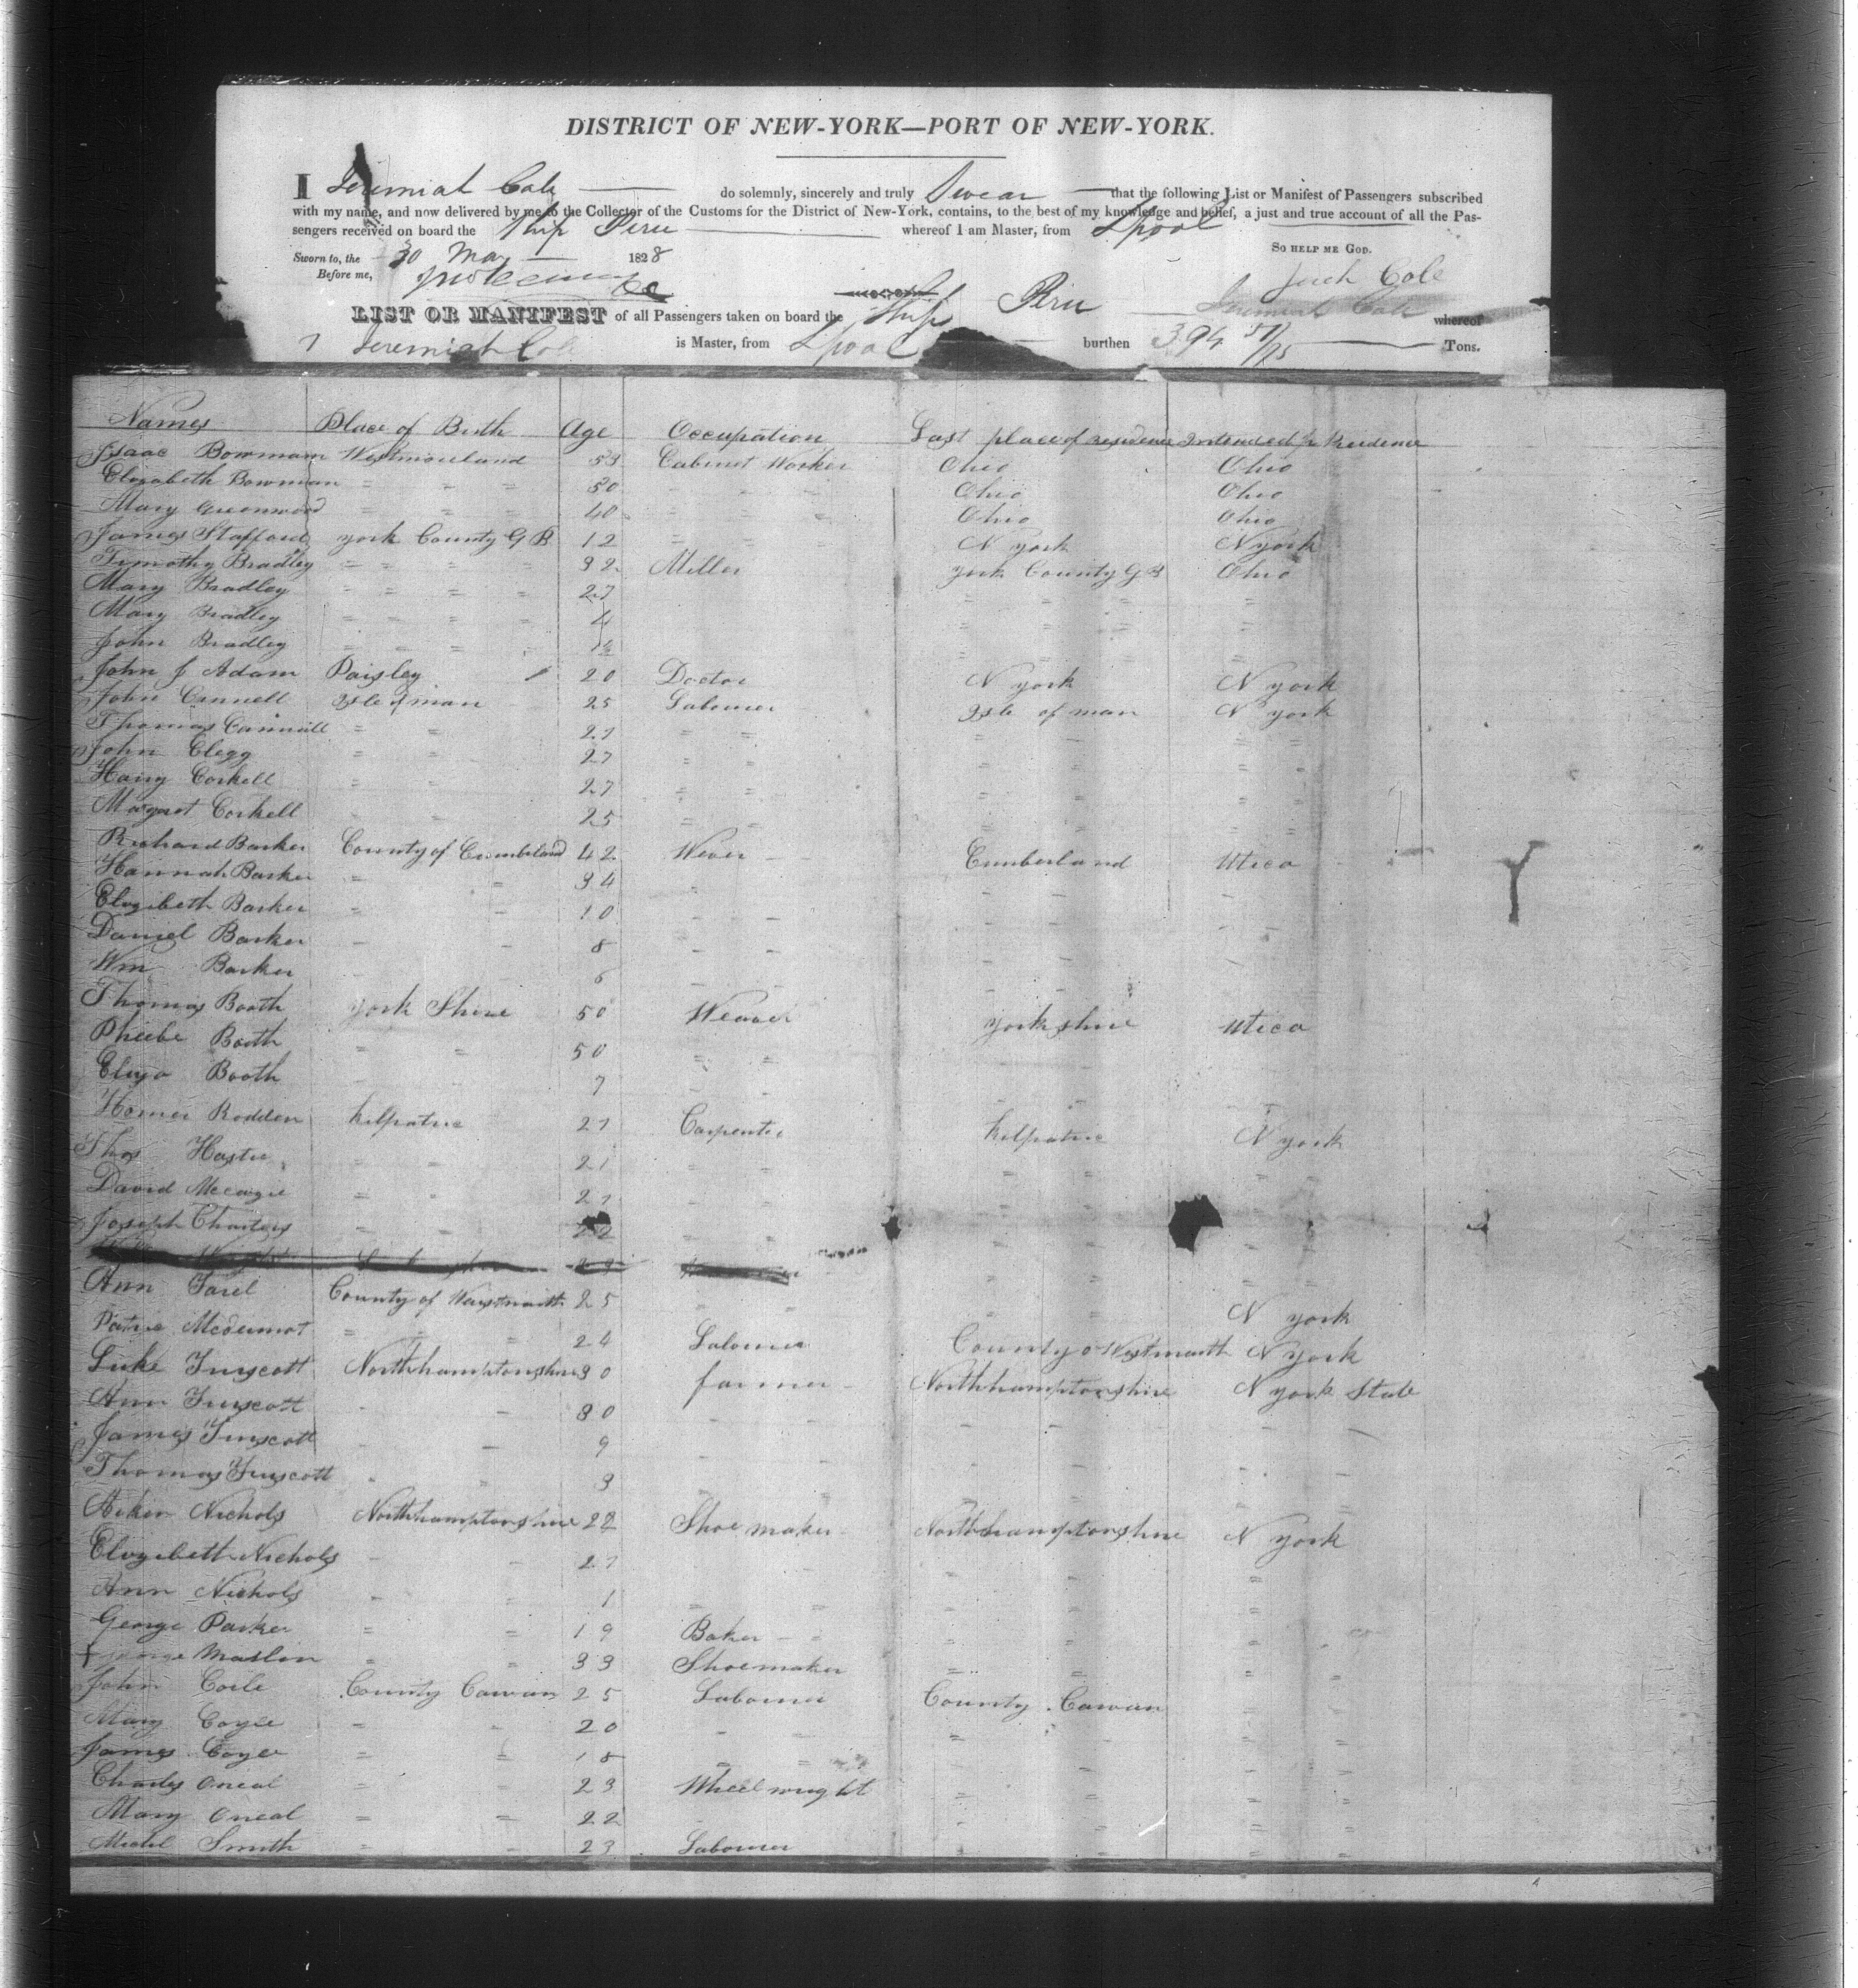 DISTRICT OF NEW-YORK—PORT OF NEW-YORK.
I Jeremiah Cole do solemnly, sincerely and truly Swear that the following List or Manifest of Passengers subscribed
with my name, and now delivered by me to the Collector of the Customs for the District of New-York, contains, to the best of my knowledge and belief, a just and true account of all the Pas-
sengers received on board the Ship Peru whereof I am Master, from Lpool
SO HELP ME GOD.
Sworn to, the 30 May 1828
Before me,
Jerh Cole
LIST OR MANIFEST of all Passengers taken on board the Ship Peru whereof
Jeremiah Cole is Master, from Lpool burthen 394 Tons.
Names Place of Birth Age Occupation Last place of residence Intended pl Residence
Isaac Bowman Westmoreland 53 Cabinet Worker Ohio Ohio
Elizabeth Bowman = = = 50 Ohio Ohio
Mary Greenwood = = = 40 Ohio Ohio
James Stafford York County G B 12 = = N York N York
Timothy Bradley = = = = 32 Miller York County G B Ohio
Mary Bradley = = = = 27 = = =
Mary Bradley = = = = 4 = = =
John Bradley = = = =
John J Adam Paisley 20 Doctor N York N York
John Cannell Isle of man 25 Labourer Isle of man N York
Thomas Cannell = = 27 = = = = = =
John Clegg = = 27 = = = = = =
Harry Corkell = = 27 = = = = = =
Margret Corkell = = 25 = = = = = =
Richard Barker County of Cumberland 42 Wever Cumberland Utica
Hannah Barker = = 34
Elizibeth Barker = = 10
Daniel Barker 8
Wm Barker 6
Thomas Booth York Shire 50 Weaver Yorkshire Utica
Phiebe Booth = = 50 = =
Eliza Booth 7
Rodden kilpatric 27 Carpenter kilpatric N York
Thos Hastie = = 21 = = = = = =
David = = 27
Joseph Charters = = 22
Ann Farel County of Westmeath 25 N York
Patric Mcdermot = = = 24 Labourer County of Westmeath N York
Luke Truscott Northhamptonshire 30 farmer Northhamptonshire N York State
Ann Truscott 30
James Truscott 9
Thomas Truscott 3
Nichols Northhamptonshire 22 Shoe maker Northhamptonshire N York
Elizibeth Nichols 27
Ann Nichols 1
George Parker = = 19 Baker = = =
Maslin = = 33 Shoemaker = = =
John Coile County Cavan 25 Labourer County Cavan
Mary Coyle = = 20 = = = = =
James Coyle = = 18 = = = = =
Charles Oneal = = 23 Wheel wright = = = =
Mary Oneal = = 22 = = = =
Michl Smith = = 23 Labourer = = = =